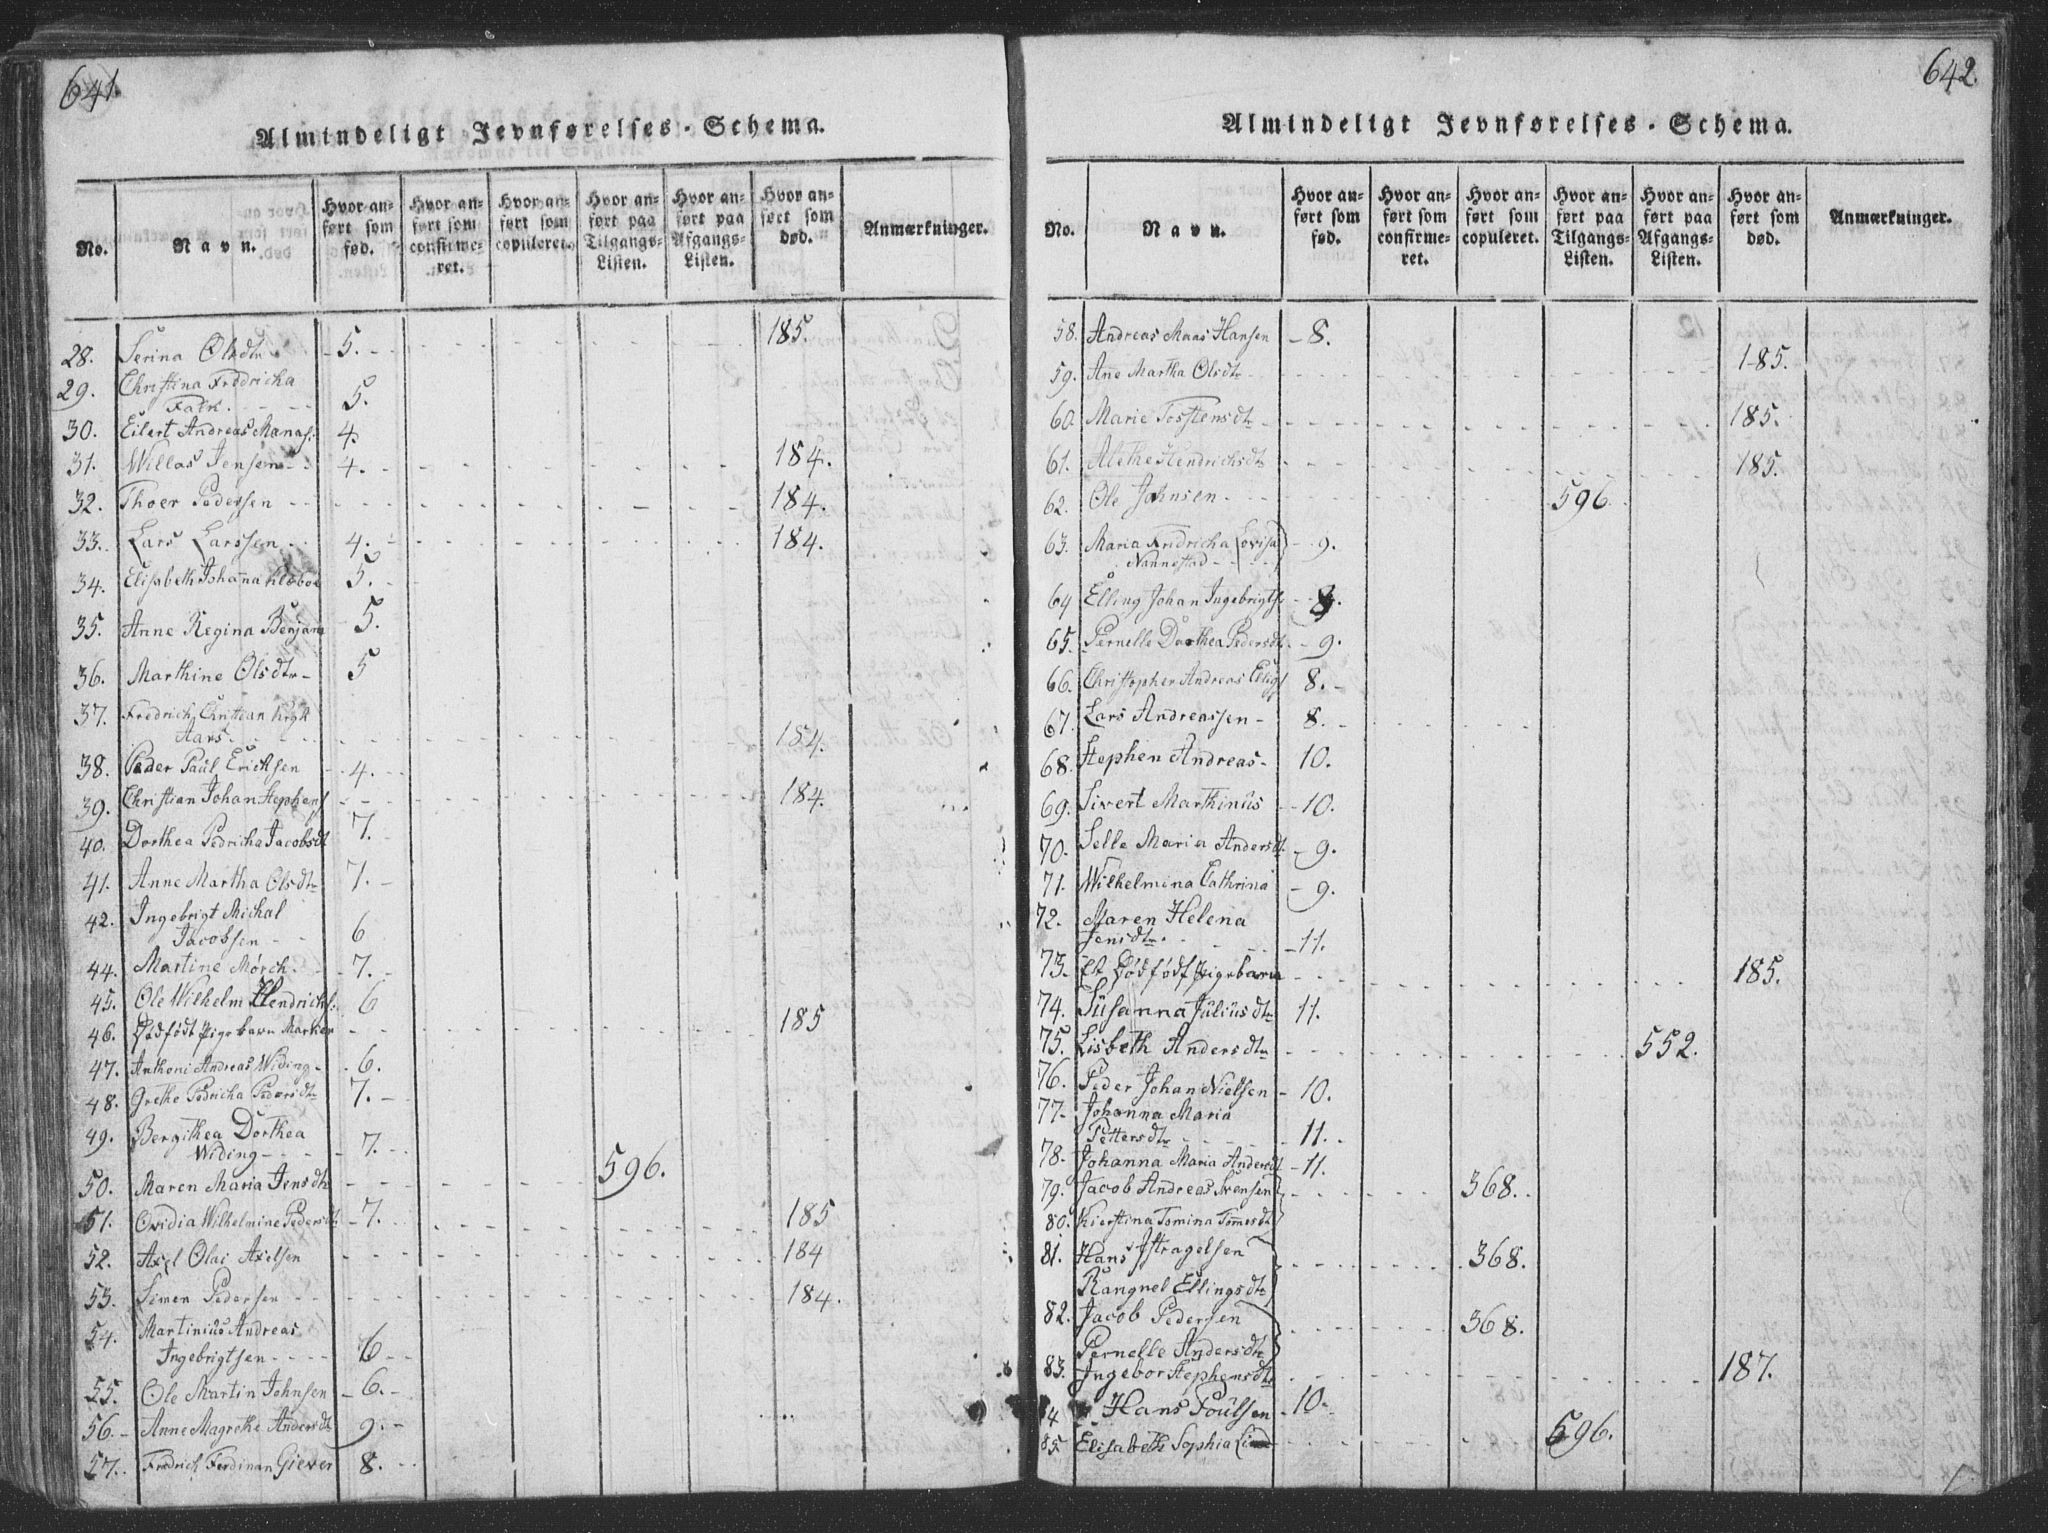 641.
Almindeligt Jevnførelses-Schema.
No.
Navn.
Hvor an-
ført som
fød.
Hvor an-
ført som
confirme-
ret.
Hvor an-
ført som
copuleret.
Hvor an-
ført paa
Tilgangs-
Listen.
Hvor an-
ført paa
Afgangs-
Listen.
Hvor an-
ført som
død.
Anmærkninger.
28. Serina Olsdtr 5. 185.
29. Christina Fredricha
Falk. 5.
30. Eilert Andreas Manas: 4.
31. Willas Jensen 4. 184.
32. Thoer Pedersen 184.
33. Lars Larssen 4. 184.
34. Elisabeth Johanna Klæboe 5.
35. Anne Regina Benjam 5.
36. Marthine Olsdtr 5
37. Fredrich Christian Krgk
Aars. 184.
38. Peder Paul Ericksen 4.
39. Christian Johan Stephens 184.
40. Dorthea Pedricha Jacobsdt 7.
41. Anne Martha Olsdtr 7.
42. Ingebrigt Michal
Jacobsen 6
44. Martine Mörch. 7.
45. Ole Wilhelm Hendrichs: 6
46. Dødfödt Pigebarn Marken 185
47. Anthoni Andreas Widing 6.
48. Grethe Pedricha Pedersdtr 7.
49. Bergithea Dorthea
Widing 7.
50. Maren Maria Jensdtr 596.
51. Ovidia Wilhelmine Pedersdtr 7. 185
52. Axel Olai Axelsen 184
53. Simen Pedersen 184.
54. Martinius Andreas
Ingebrigtsen 6
55. Ole Martin Johnsen 6.
56. Anne Magrethe Andersdt 9.
57. Fredrich Ferdinan Giever 8.
642.
Almindeligt Jevnførelses-Schema.
No.
Navn.
Hvor an-
ført som
fød.
Hvor an-
ført som
confirme-
ret.
Hvor an-
ført som
copuleret.
Hvor an-
ført paa
Tilgangs-
Listen.
Hvor an-
ført paa
Afgangs-
Listen.
Hvor an-
ført som
død.
Anmærkninger.
58. Andreas Maas Hansen 8.
59. Ane Martha Olsdtr 185.
60. Marie Tostensdtr 185.
61. Alethe Hendrichsdtr 185.
62. Ole Johnsen 596.
63. Maria Fridricha Lovisa 9.
Nannestad
64 Elling Johan Ingebrigts 8.
65. Pernelle Dorthea Pedersdtr 9.
66. Christopher Andreas 8.
67. Lars Andreassen 8.
68. Stephen Andreas 10.
69. Sivert Marthinus 10.
70. Selle Maria Andersdt. 9.
71. Wilhelmina Cathrina 9.
72. Maren Helena
Jensdtr 11.
73. Et Dödfödt Pigebarn 185.
74. Susanna Juliusdtr 11.
75. Lisbeth Andersdtr 552.
76. Peder Johan Nielsen 10.
77. Johanna Maria
Pettersdtr 11.
78. Johanna Maria Andersdt 11.
79. Jacob Andreas Svensen 368.
80. Kierstina Tomina Tomesdt
81. Hans Istragelsen 368.
Rangnel Ellingsdtr
82. Jacob Pedersen 368.
Pernelle Andersdtr
83. Ingebor Stephensdtr 187.
4 Hans Poulsen 10.
85. Elisabeth Sophia 596.